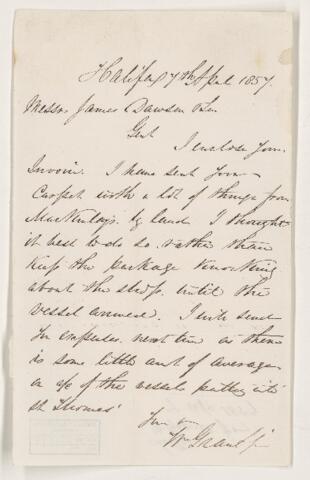 Halifax 7th April 1857.
Messrs James Dawson & Son
Gent
I enclose your
Invoice. I have sent your
Carpet with a lot of things from
MacKinlays. by land I thought
it best to do so rather than
keep the package knocking
about the shop until the
vessel arrived. I will send
in next time as there
is some little amt of average
on a/c of the vessel putting into
St Thomas'
Wm Grant Jr